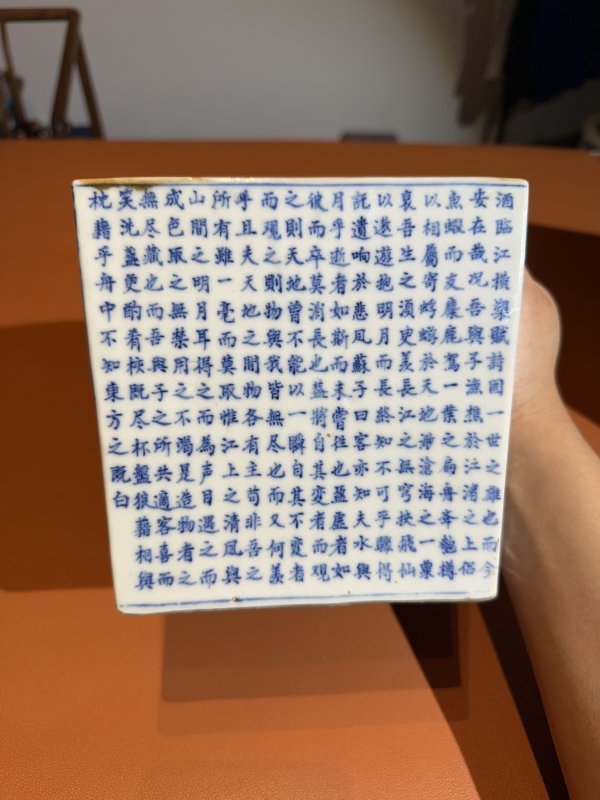 酒臨江橫槊賦詩固一世之雄也而今
安在哉況吾與子漁樵於江渚之上侶
魚蝦而友麋鹿駕一葉之扁舟舉匏樽
以相屬寄蜉蝣於天地渺滄海之一粟
哀吾生之須臾羨長江之無穹挾飛仙
以遨遊抱明月而長終知不可乎驟得
託遺响於悲風蘇子曰客亦知夫水與
月乎逝者如斯而未嘗往也盈虛者如
彼而卒莫消長也蓋將自其變者而觀
之則天地曾不能以一瞬自其不變者
而觀之則物與我皆無尽也而又何羨
乎且夫天地之間物各有主苟非吾之
所有雖一毫而莫取惟江上之清風與
山間之明月耳得之而為声目遇之而
成色取之無禁用之不竭是造物者之
無尽藏也而吾與子之所共適客喜而
笑洗盞更酌肴核既尽杯盤狼藉相與
枕藉乎舟中不知東方之既白